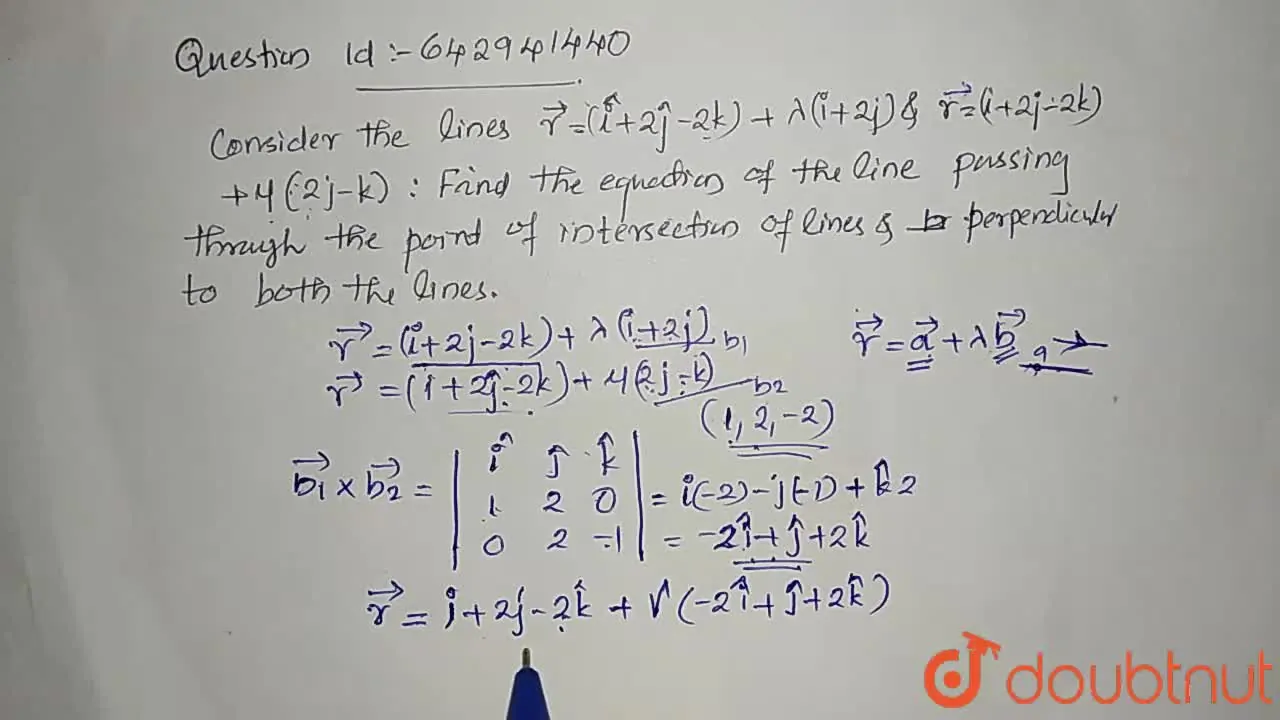 Question Id :- 642941440
Consider the lines r⃗ = (î+2ĵ-2k) + λ(i+2j) & r⃗ = (i+2j-2k)
+ μ(2j-k) : Find the equation of the line passing
through the point of intersection of lines & perpendicular
to both the lines.
r⃗ = (i+2j-2k) + λ(i+2j) b1
r⃗ = a⃗ + λb⃗
r⃗ = (i+2ĵ-2k) + μ(2j-k) b2
(1, 2, -2)
b⃗1 × b⃗2 = | î ĵ k̂ |
| 1 2 0 | = i(-2)-j(-1)+k̂2
| 0 2 -1 | = -2î+ĵ+2k̂
r⃗ = i+2j-2k̂ + γ(-2î+ĵ+2k̂)
doubtnut